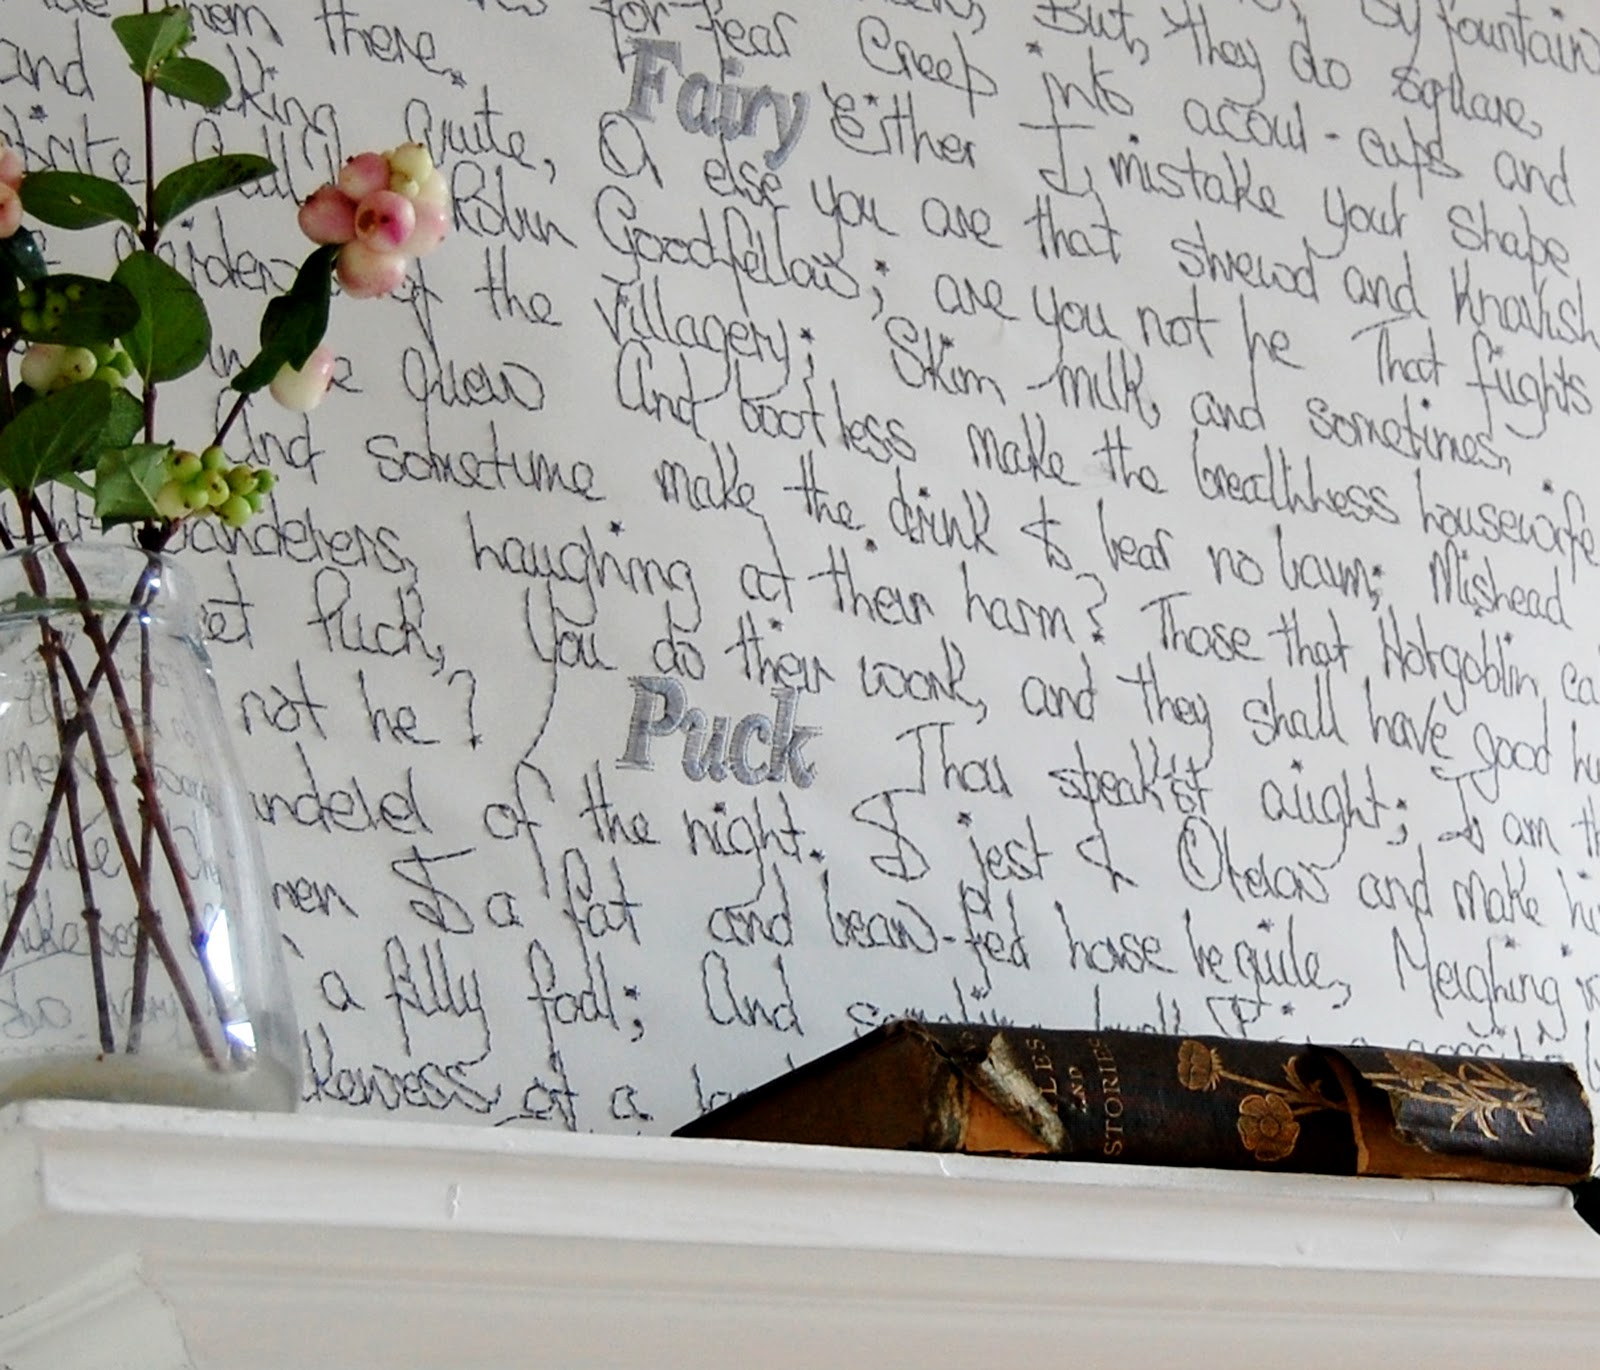 by fountain
But, they do square,
them there. for fear Creep into acoul-cups and
Fairy Either I mistake your shape
and making quite, Or else you are that shrewd and Knavish
Robin Goodfellow; are you not he That fights
of the villagery; Skim-milk, and sometimes,
quern And bootless make the breathless housewife
And sometime make the drink to bear no barm; Mishead
wanderers, haughing at their harm? Those that Hotgoblin ca
et Puck, You do their work, and they shall have good
not he? Puck Thou speak'st aught; I am th
of the night. I jest to Oberon and make hi
I a fat and bean-fed horse beguile, Neighing
a filly foal; And
keness of a
AND
STORIES